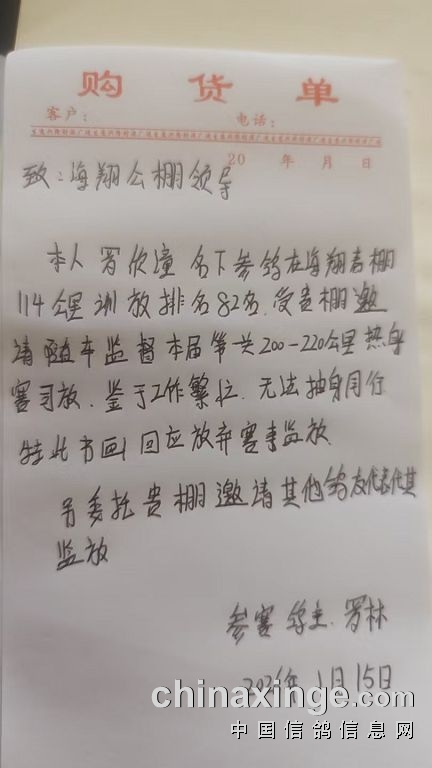 购货单
客户： 电话：
20 年 月 日
致：海翔公棚领导
本人 罗欣潼 名下参鸽在海翔春棚
114公里训放排名82名.受贵棚邀
请随车监督本届第关200-220公里热身
赛司放.鉴于工作繁忙.无法抽身同行
特此书面回应放弃赛事监放.
另委托贵棚邀请其他鸽友代表代其
监放
参赛鸽主.罗林
年1月15日
chinaxinge.com
中国信鸽信息网